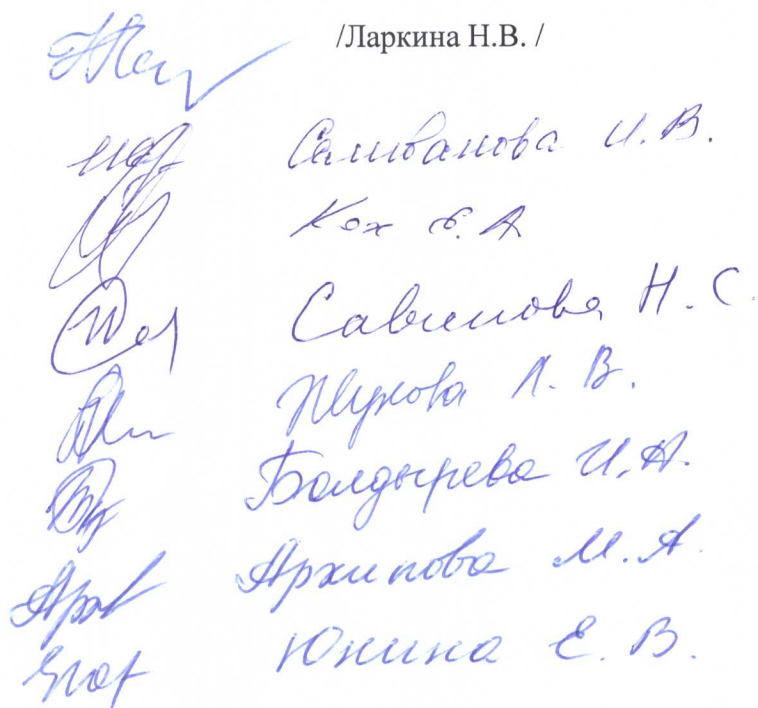 /Ларкина Н.В. /
Селиванова И. В.
Кох Е. А
Савинова Н. С.
Жукова Л. В.
Болдырева И. А.
Архипова М. А.
Юнина Е. В.